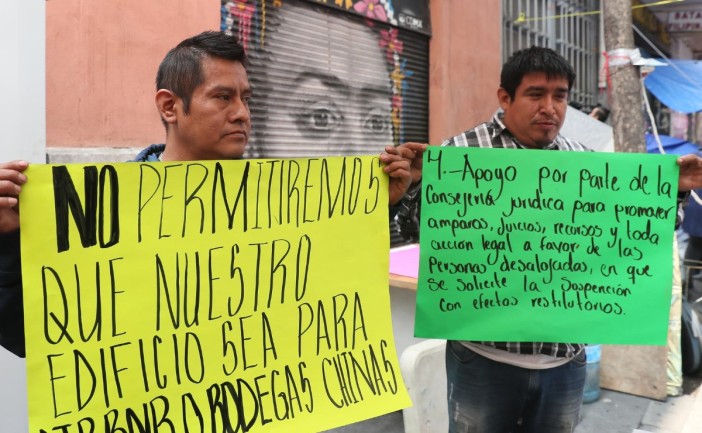 NO PERMITIREMOS
QUE NUESTRO
EDIFICIO SEA PARA
BODEGAS CHINAS
4.-Apoyo por parte de la
Consejería jurídica para promover
amparos, juicios, recursos y toda
acción legal a favor de las
Personas desalojadas, en que
se solicite la Suspención
con efectos restitutorios.